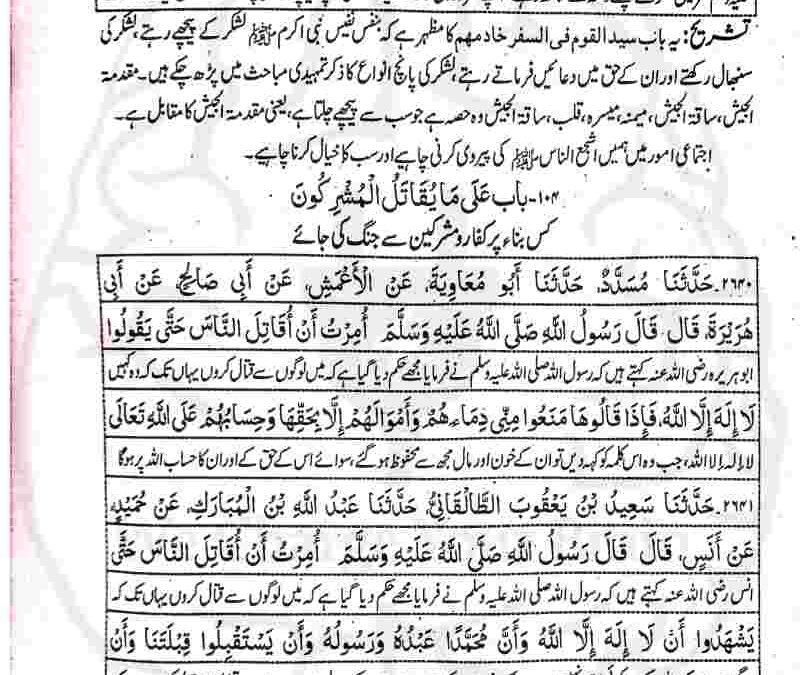 تشریح: یہ باب سید القوم فی السفر خادمهم کا مظہر ہے کہ بنفس نفیس نبی اکرم ﷺ لشکر کے پیچھے رہتے، لشکر کی
سنبھال رکھتے اور ان کے حق میں دعائیں فرماتے رہتے، لشکر کی پانچ انواع کا ذکر تمہیدی مباحث میں پڑھ چکے ہیں۔ مقدمۃ
الجیش، ساقۃ الجیش، میمنہ، میسرہ، قلب، ساقۃ الجیش وہ حصہ ہے جو سب سے پیچھے چلتا ہے، یعنی مقدمۃ الجیش کا مقابل ہے۔
اجتماعی امور میں ہمیں اشجع الناس ﷺ کی پیروی کرنی چاہیے اور سب کا خیال کرنا چاہیے۔
۱۰۴- باب عَلَى مَا يُقَاتَلُ الْمُشْرِكُونَ
کس بناء پر کفار و مشرکین سے جنگ کی جائے
۲۶۴۰. حَدَّثَنَا مُسَدَّدٌ، حَدَّثَنَا أَبُو مُعَاوِيَةَ، عَنْ الْأَعْمَشِ، عَنْ أَبِي صَالِحٍ، عَنْ أَبِي
هُرَيْرَةَ، قَالَ: قَالَ رَسُولُ اللَّهِ صَلَّى اللَّهُ عَلَيْهِ وَسَلَّمَ أُمِرْتُ أَنْ أُقَاتِلَ النَّاسَ حَتَّى يَقُولُوا
ابو ہریرہ رضی اللہ عنہ کہتے ہیں کہ رسول اللہ صلی اللہ علیہ وسلم نے فرمایا مجھے حکم دیا گیا ہے کہ میں لوگوں سے قتال کروں یہاں تک کہ وہ کہیں
لَا إِلَهَ إِلَّا اللَّهُ، فَإِذَا قَالُوهَا مَنَعُوا مِنِّي دِمَاءَهُمْ وَأَمْوَالَهُمْ إِلَّا بِحَقِّهَا وَحِسَابُهُمْ عَلَى اللَّهِ تَعَالَى
لا إلہ إلا اللہ، جب وہ اس کلمہ کو کہہ دیں تو ان کے خون اور مال مجھ سے محفوظ ہو گئے، سوائے اس کے حق کے اور ان کا حساب اللہ پر ہوگا
۲۶۴۱. حَدَّثَنَا سَعِيدُ بْنُ يَعْقُوبَ الطَّالَقَانِيُّ، حَدَّثَنَا عَبْدُ اللَّهِ بْنُ الْمُبَارَكِ، عَنْ حُمَيْدٍ،
عَنْ أَنَسٍ، قَالَ: قَالَ رَسُولُ اللَّهِ صَلَّى اللَّهُ عَلَيْهِ وَسَلَّمَ أُمِرْتُ أَنْ أُقَاتِلَ النَّاسَ حَتَّى
انس رضی اللہ عنہ کہتے ہیں کہ رسول اللہ صلی اللہ علیہ وسلم نے فرمایا مجھے حکم دیا گیا ہے کہ میں لوگوں سے قتال کروں یہاں تک کہ
يَشْهَدُوا أَنْ لَا إِلَهَ إِلَّا اللَّهُ وَأَنَّ مُحَمَّدًا عَبْدُهُ وَرَسُولُهُ وَأَنْ يَسْتَقْبِلُوا قِبْلَتَنَا وَأَنْ